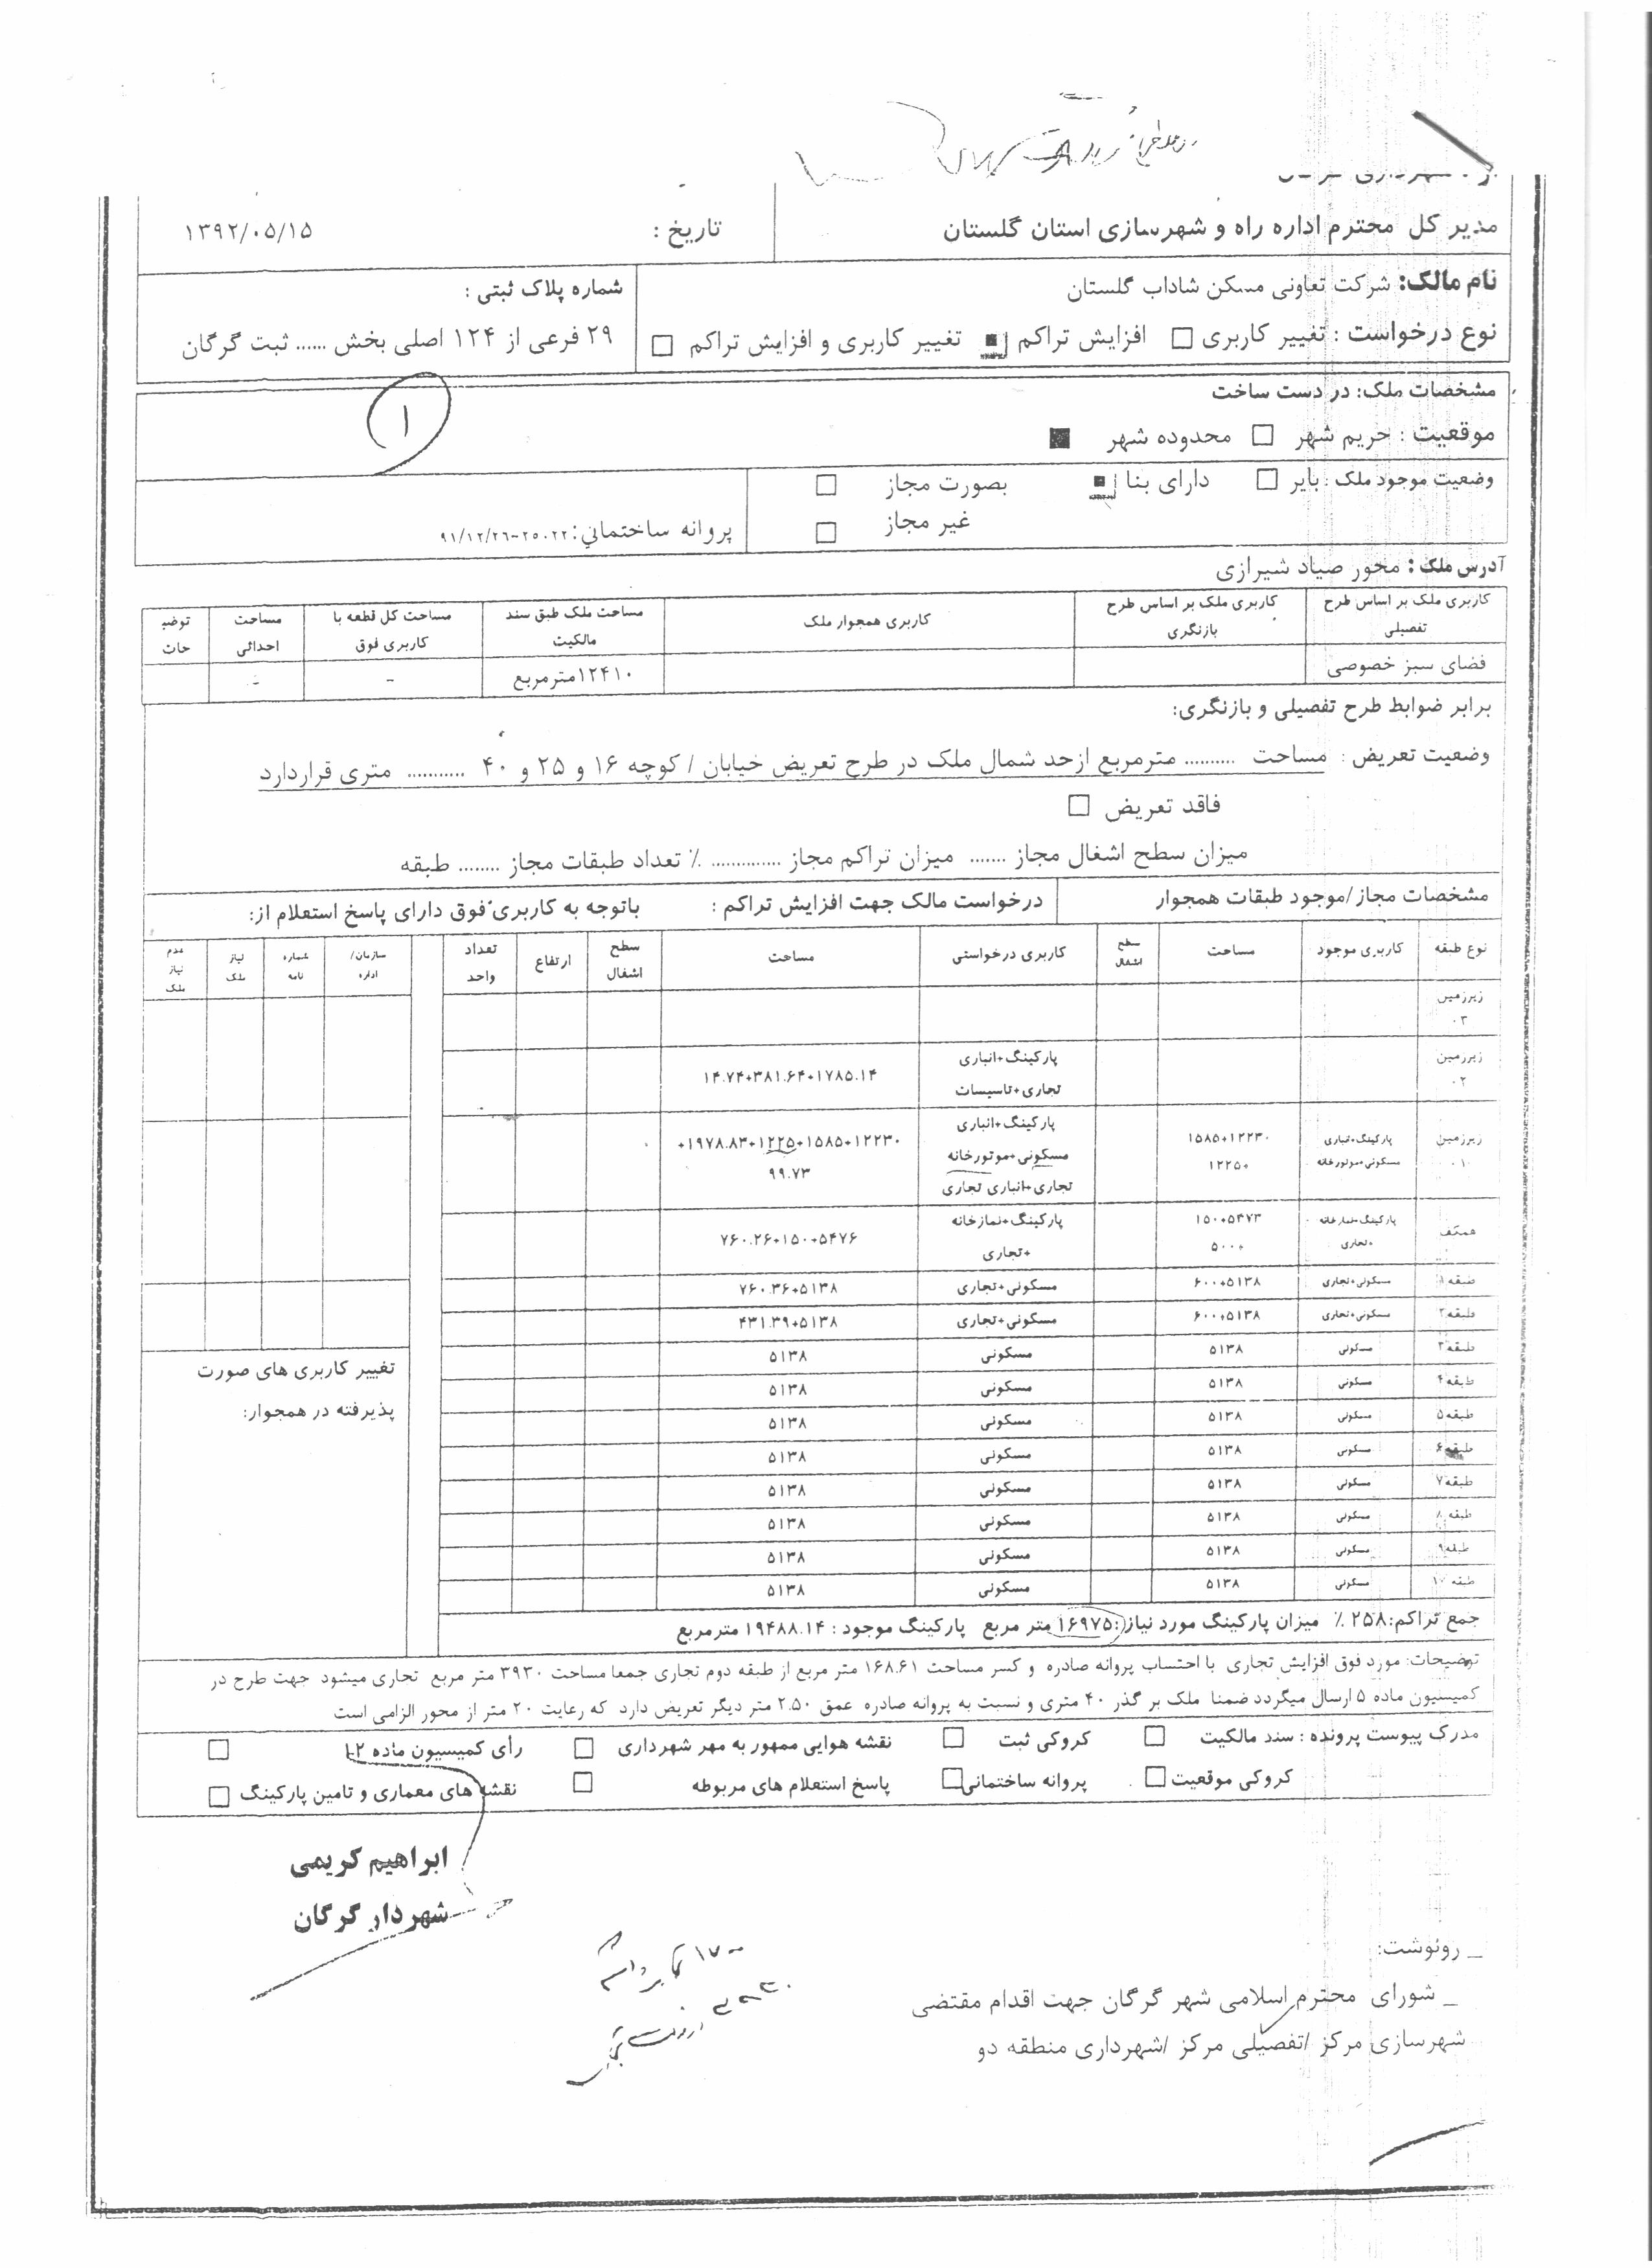 مدیر کل محترم اداره راه و شهرسازی استان گلستان
تاریخ : ۱۳۹۲/۰۵/۱۵
نام مالک: شرکت تعاونی مسکن شاداب گلستان
شماره پلاک ثبتی :
نوع درخواست : تغییر کاربری □ افزایش تراکم ■ تغییر کاربری و افزایش تراکم □
۲۹ فرعی از ۱۲۴ اصلی بخش ...... ثبت گرگان
مشخصات ملک: در دست ساخت
۱
موقعیت : حریم شهر □ محدوده شهر ■
وضعیت موجود ملک : بایر □ دارای بنا ■ بصورت مجاز □
غیر مجاز □
پروانه ساختمانی: ۲۵۰۲۲-۹۱/۱۲/۲۶
آدرس ملک : محور صیاد شیرازی
کاربری ملک بر اساس طرح تفصیلی
کاربری ملک بر اساس طرح بازنگری
کاربری همجوار ملک
مساحت ملک طبق سند مالکیت
مساحت کل قطعه با کاربری فوق
مساحت احداثی
توضیحات
فضای سبز خصوصی
۱۲۴۱۰مترمربع
-
-
برابر ضوابط طرح تفصیلی و بازنگری:
وضعیت تعریض : مساحت .......... مترمربع ازحد شمال ملک در طرح تعریض خیابان / کوچه ۱۶ و ۲۵ و ۴۰ ........... متری قراردارد
فاقد تعریض □
میزان سطح اشغال مجاز ....... میزان تراکم مجاز .............. ٪ تعداد طبقات مجاز ........ طبقه
مشخصات مجاز /موجود طبقات همجوار
درخواست مالک جهت افزایش تراکم :
باتوجه به کاربری فوق دارای پاسخ استعلام از:
نوع طبقه کاربری موجود مساحت سطح اشغال کاربری درخواستی مساحت سطح اشغال ارتفاع تعداد واحد سازمان/اداره شماره نامه نیاز ملک عدم نیاز ملک
زیرزمین ۰۳
زیرزمین ۰۲ پارکینگ+انباری تجاری+تاسیسات ۱۴.۷۴+۳۸۱.۶۴+۱۷۸۵.۱۴
زیرزمین ۰۱ پارکینگ+انباری مسکونی+موتورخانه ۱۵۸۵+۱۲۲۳۰ +۱۲۲۵ پارکینگ+انباری مسکونی+موتورخانه تجاری+انباری تجاری +۱۹۷۸.۸۳+۱۲۲۵+۱۵۸۵+۱۲۲۳۰ ۹۹.۷۳
همکف پارکینگ+نمازخانه +تجاری ۱۵۰+۵۴۷۳ +۵۰۰ پارکینگ+نمازخانه +تجاری ۷۶۰.۲۶+۱۵۰+۵۴۷۶
طبقه۱ مسکونی+تجاری ۶۰۰+۵۱۳۸ مسکونی+تجاری ۷۶۰.۳۶+۵۱۳۸
طبقه۲ مسکونی+تجاری ۶۰۰+۵۱۳۸ مسکونی+تجاری ۴۳۱.۳۹+۵۱۳۸
طبقه۳ مسکونی ۵۱۳۸ مسکونی ۵۱۳۸
طبقه۴ مسکونی ۵۱۳۸ مسکونی ۵۱۳۸
طبقه۵ مسکونی ۵۱۳۸ مسکونی ۵۱۳۸
طبقه۶ مسکونی ۵۱۳۸ مسکونی ۵۱۳۸
طبقه۷ مسکونی ۵۱۳۸ مسکونی ۵۱۳۸
طبقه ۸ مسکونی ۵۱۳۸ مسکونی ۵۱۳۸
طبقه۹ مسکونی ۵۱۳۸ مسکونی ۵۱۳۸
طبقه ۱۰ مسکونی ۵۱۳۸ مسکونی ۵۱۳۸
تغییر کاربری های صورت
پذیرفته در همجوار:
جمع تراکم: ۲۵۸ ٪ میزان پارکینگ مورد نیاز: ۱۶۹۷۵ متر مربع پارکینگ موجود : ۱۹۴۸۸.۱۴ مترمربع
توضیحات: مورد فوق افزایش تجاری با احتساب پروانه صادره و کسر مساحت ۱۶۸.۶۱ متر مربع از طبقه دوم تجاری جمعا مساحت ۳۹۳۰ متر مربع تجاری میشود جهت طرح در
کمیسیون ماده ۵ ارسال میگردد ضمنا ملک بر گذر ۴۰ متری و نسبت به پروانه صادره عمق ۲.۵۰ متر دیگر تعریض دارد که رعایت ۲۰ متر از محور الزامی است
مدرک پیوست پرونده : سند مالکیت □ کروکی ثبت □ نقشه هوایی ممهور به مهر شهرداری □ رأی کمیسیون ماده ۱۲ □
کروکی موقعیت □ پروانه ساختمانی □ پاسخ استعلام های مربوطه □ نقشه های معماری و تامین پارکینگ □
ابراهیم کریمی
شهردار گرگان
۱۷۰۰
۳۹۳۰
_ رونوشت:
_ شورای محترم اسلامی شهر گرگان جهت اقدام مقتضی
شهرسازی مرکز /تفصیلی مرکز /شهرداری منطقه دو